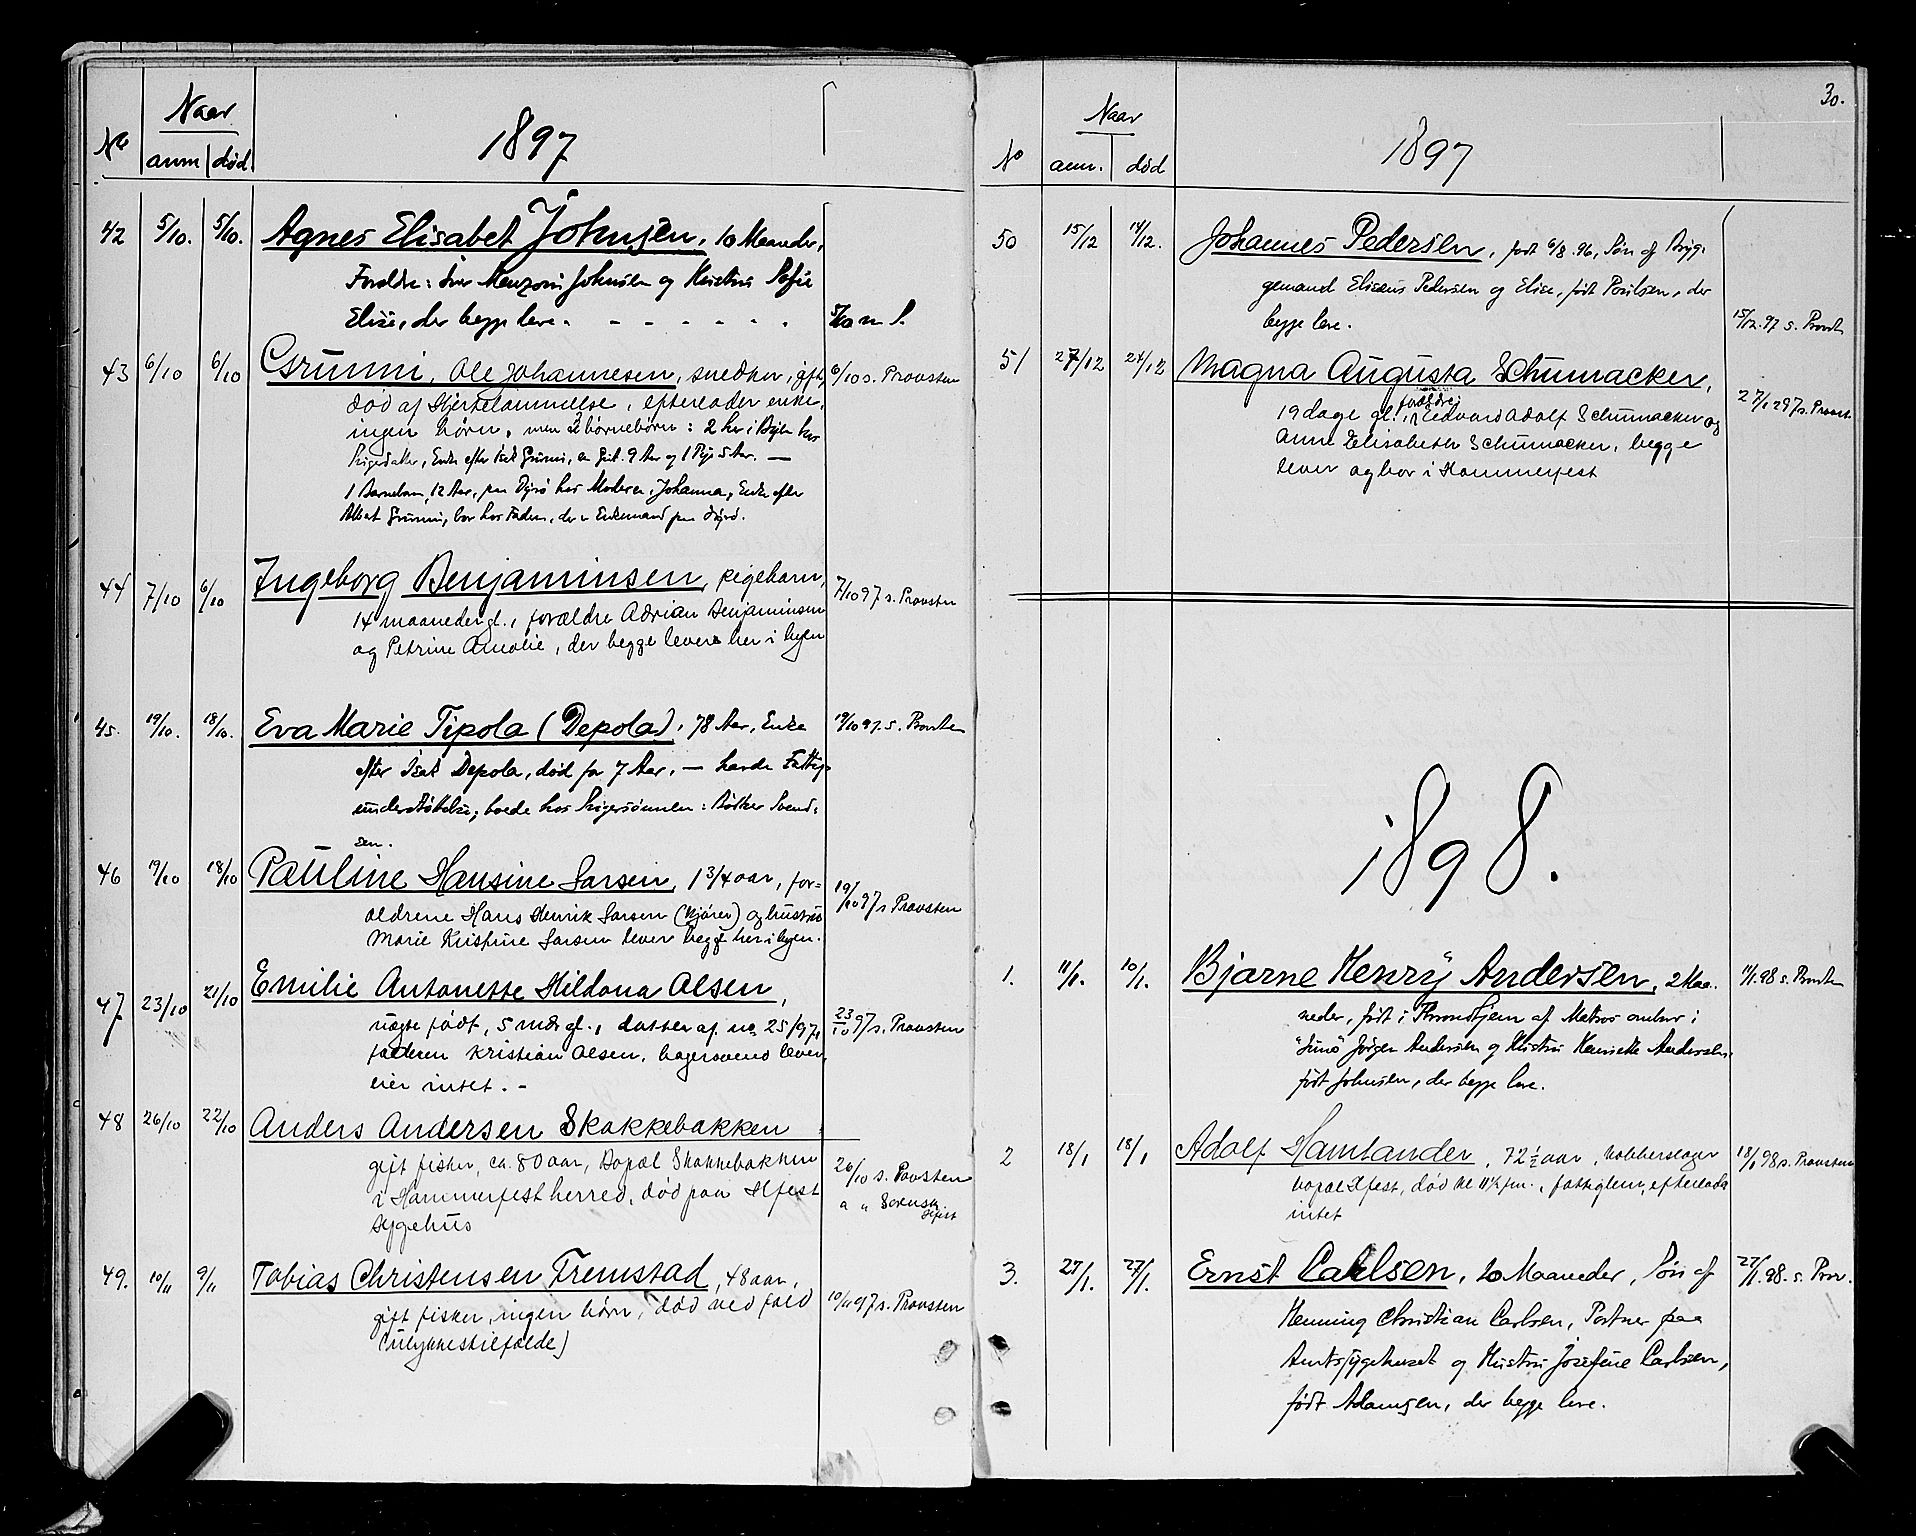 Naar
No anm død
1897
42 5/10. 5/10. Agnes Elisabet Johnsen, 10 Maaneder,
Forældre: Johnsen og Hustru Sofie
Elise, der begge leve. - - - - - - 5/10 m S.
43 6/10 6/10 Grunni, Ole Johannesen, snedker, gift, 6/10 s. Provsten
død af Hjertelammelse, efterlader enke,
ingen børn, men børnebørn: 2 her i Byen hos
Svigerdatter, Enke efter Isak Grunni, en Gut 9 Aar og 1 Pige 5 Aar. —
1 Barnebarn, 12 Aar, paa hos Moderen, Johanna, Enke efter
Grunni, bor hos Faderen, der er Enkemand paa
44 7/10 6/10 Ingeborg Benjaminsen, pigebarn, 7/10 97 s. Provsten
14 maaneder gl., forældre Adrian Benjaminsen
og Petrine Amalie, der begge lever her i byen
45. 19/10. 18/10. Eva Marie Tipola (Depola), 78 Aar, Enke 19/10 97. s. Provsten
efter Isak Depola, død for 7 Aar, — havde Fattig-
understøttelse; boede hos Svigersønnen: Bødker Svend-
sen.
46 19/10 18/10 Pauline Hansine Larsen, 1 3/4 aar, for= 19/10 97 s Provsten
ældrene Hans Henrik Larsen (kjører) og hustru
Marie Kristine Larsen lever begge her i byen.
47 23/10 21/10 Emilie Antonette Hildona Olsen,
uægte født, 5 mdr gl., datter af no 25/97, 23/10 97 s. Provsten
faderen Kristian Olsen, bagersvend lever,
eier intet. -
48 26/10 22/10 Anders Andersen Skakkebakken
gift fisker, ca. 80 aar, Bopæl Skakkebakken 26/10 s. Provsten
i Hammerfest herred, død paa Hfest
sygehus
49. 10/11 9/11 Tobias Christensen Fremstad, 48 aar,
gift fisker, ingen børn, død ved fald 10/11 97 s. Provsten
(ulykkestilfælde)
30.
Naar
No anm. død
1897
50 15/12 14/12. Johannes Pedersen, født 6/8. 96, Søn af Bryg-
gemand Eliseus Pedersen og Elise, født Poulsen, der
begge leve. 15/12. 97 s. Provsten
51 27/12 24/12 Magna Augusta Schumacker,
19 dage gl., forældre: Edvard Adolf Schumacker og 27/12 97 s. Provsten
Anne Elisabeth Schumacker, begge
lever og bor i Hammerfest
1898.
1. 11/1. 10/1. Bjarne Henry Andersen, 2 Maa- 11/1. 98 s. Provsten
neder, født i Thronhjem af Matros ombor i
"Juno" Jørgen Andersen og Hustru Henriette Andersen,
født Johnsen, der begge leve.
2 18/1 18/1 Adolf Hamlander, 72 1/2 aar, kobberslager 18/1 98 s. Provsten
bopæl Hfest, død kl 11 1/2 fm., fattiglem, efterlader
intet
3. 27/1. 27/1. Ernst Carlsen, 10 Maaneder, Søn af 27/1. 98. s. Prov.
Henning Christian Carlsen, Portner paa
Amtssygehuset og Hustru Josefine Carlsen,
født Adamsen, der begge leve.